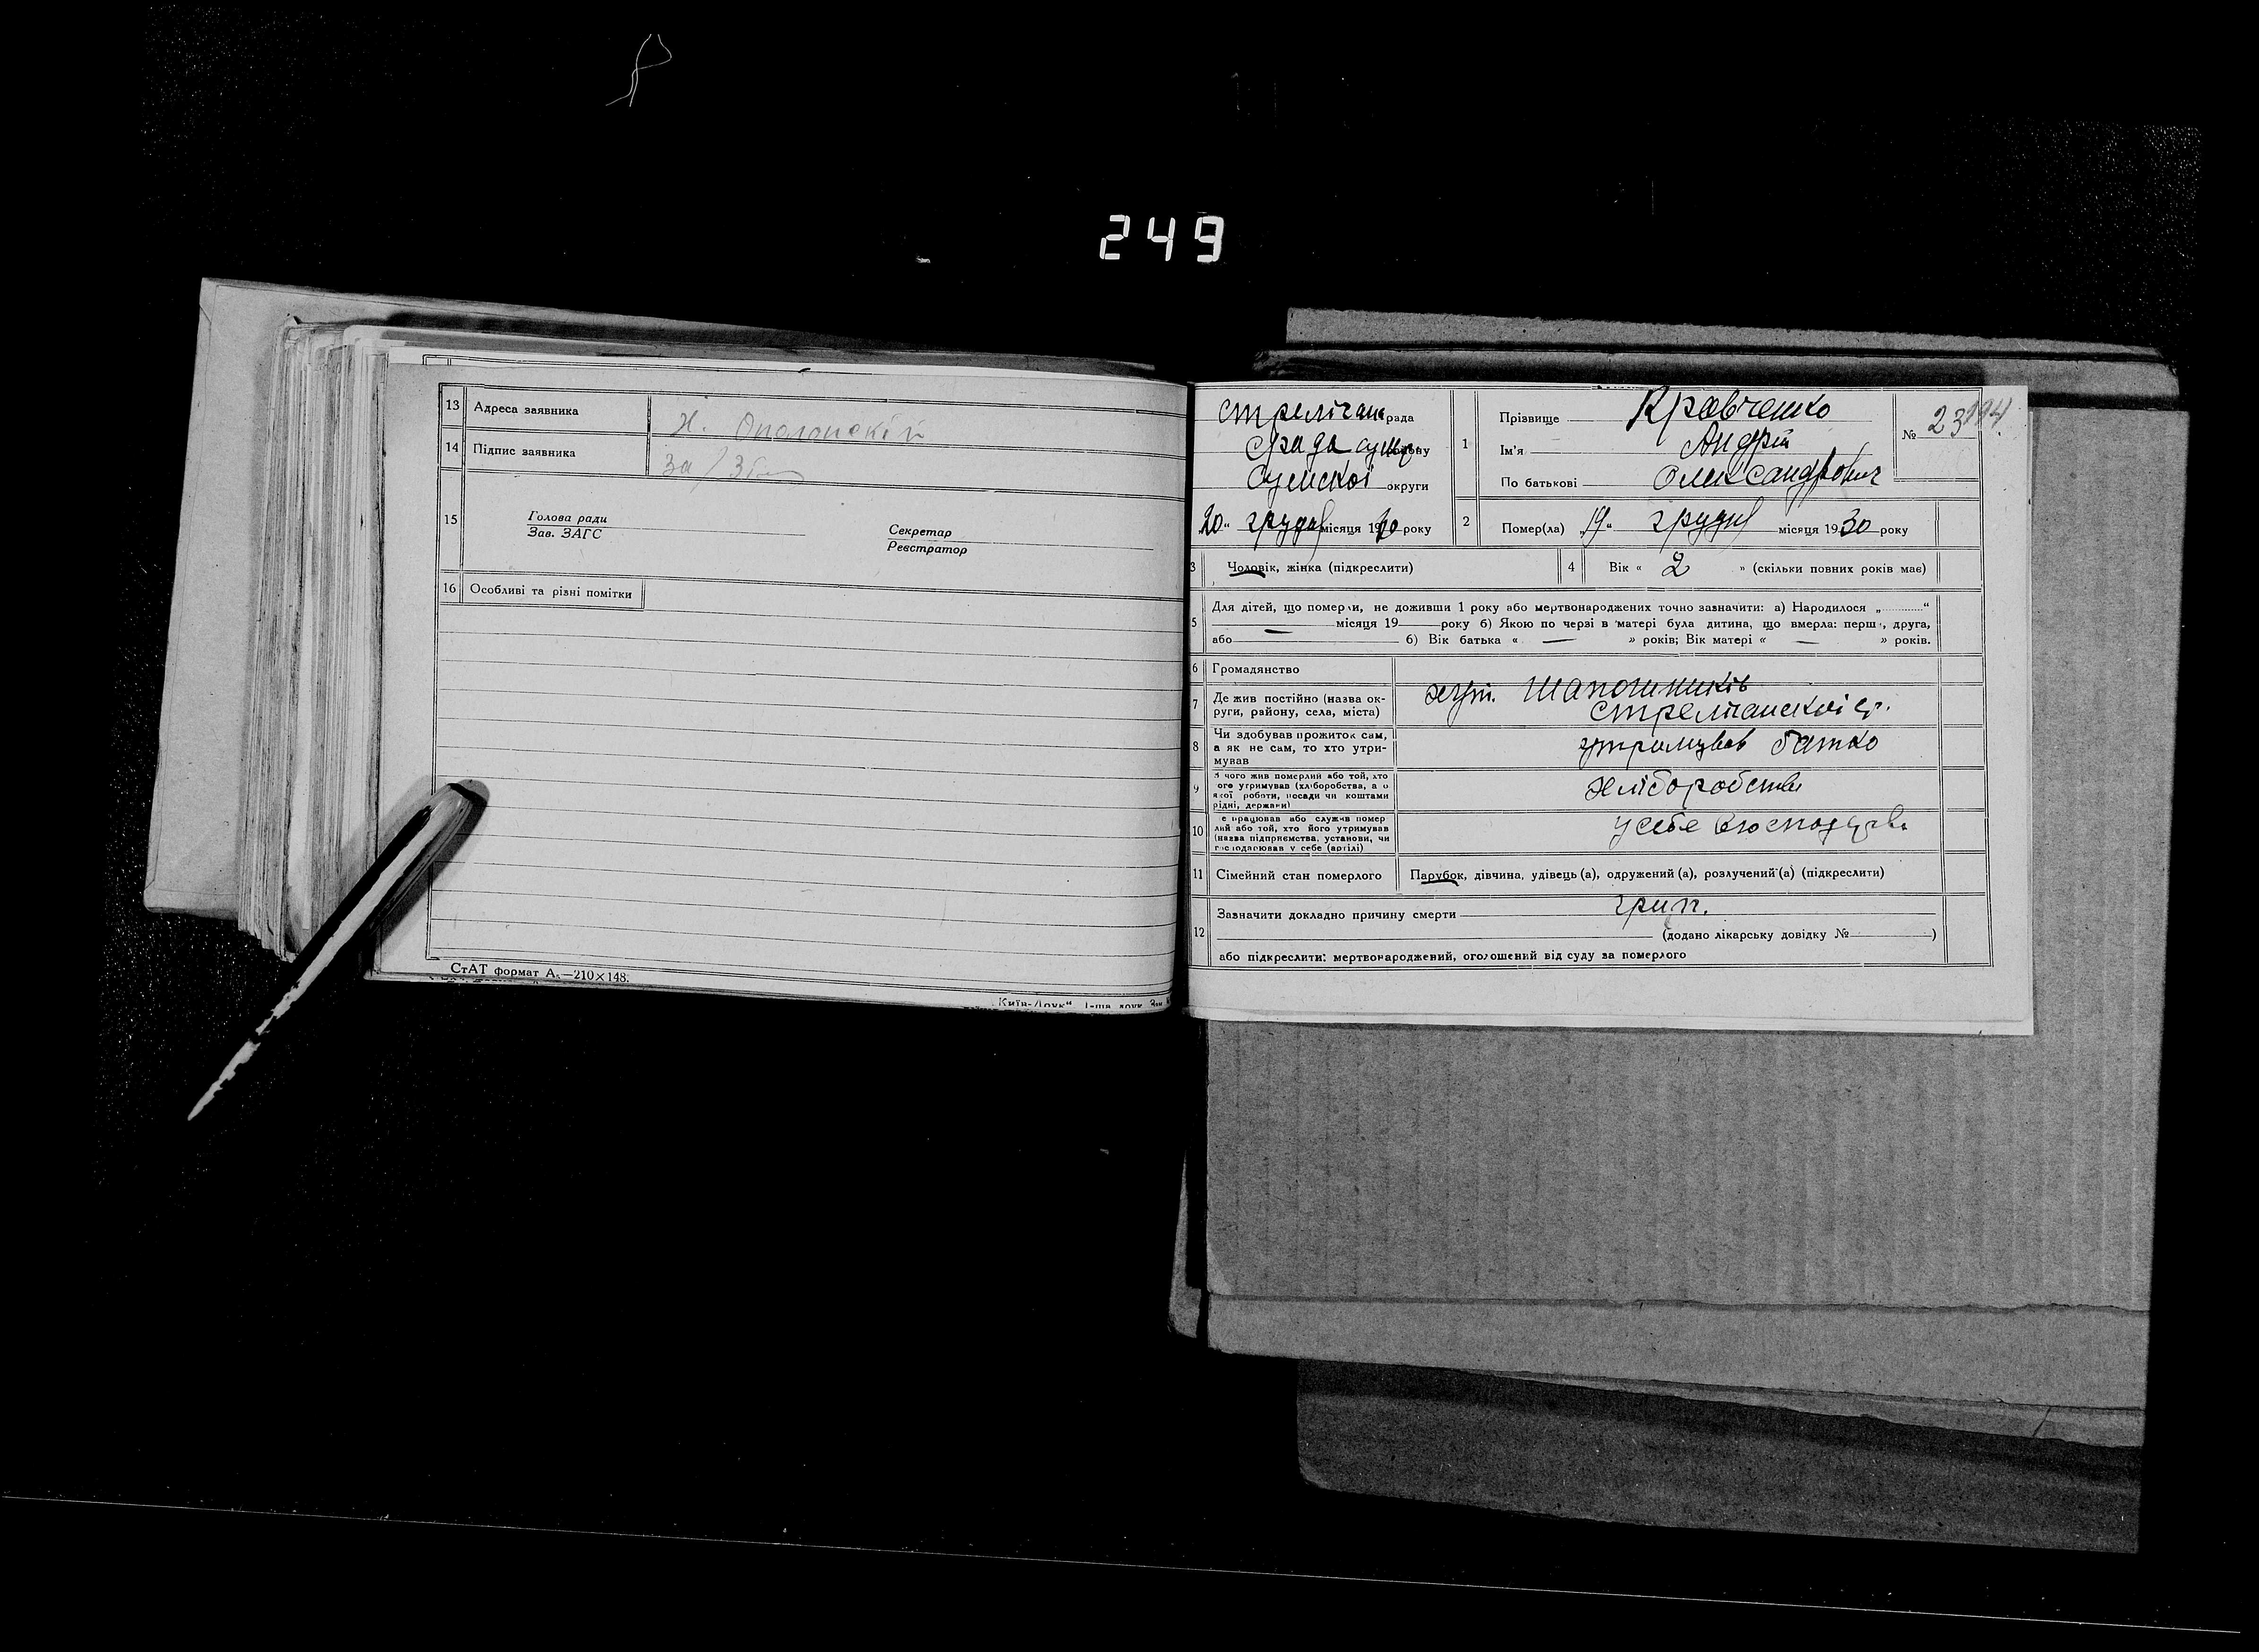 249
13 Адреса заявника
х.
14 Підпис заявника
за
15 Голова ради
Зав. ЗАГС
Секретар
Реєстратор
16 Особливі та різні помітки
СтАТ формат А₅—210×148.
„Київ-Друк“ 1-ша друк. Зам.
рада
Сумської округи
20 “ грудня місяця 1930 року
1 Прізвище Кравченко
Ім'я Андрій
По батькові Олександрович
№ 23 194
2 Помер(ла) „19“ грудня місяця 1930 року
3 Чоловік, жінка (підкреслити)
4 Вік « 2 » (скільки повних років має)
5 Для дітей, що померли, не доживши 1 року або мертвонароджених точно зазначити: а) Народилося „............“
— місяця 19 року б) Якою по черзі в матері була дитина, що вмерла: перша, друга,
або б) Вік батька « — » років; Вік матері « — » років.
6 Громадянство
7 Де жив постійно (назва округи, району, села, міста)
хут. Шапошників
8 Чи здобував прожиток сам, а як не сам, то хто утримував
утримував батко
9 З чого жив померлий або той, хто його утримував (хліборобства, а о якої роботи, посади чи коштами рідні, держави)
хліборобства
10 Де працював або служив померлий або той, хто його утримував (назва підприємства, установи, чи господарював у себе (артілі)
у себе
11 Сімейний стан померлого
Парубок, дівчина, удівець (а), одружений (а), розлучений (а) (підкреслити)
12 Зазначити докладно причину смерти грип.
(додано лікарську довідку № )
або підкреслити: мертвонароджений, оголошений від суду за померлого